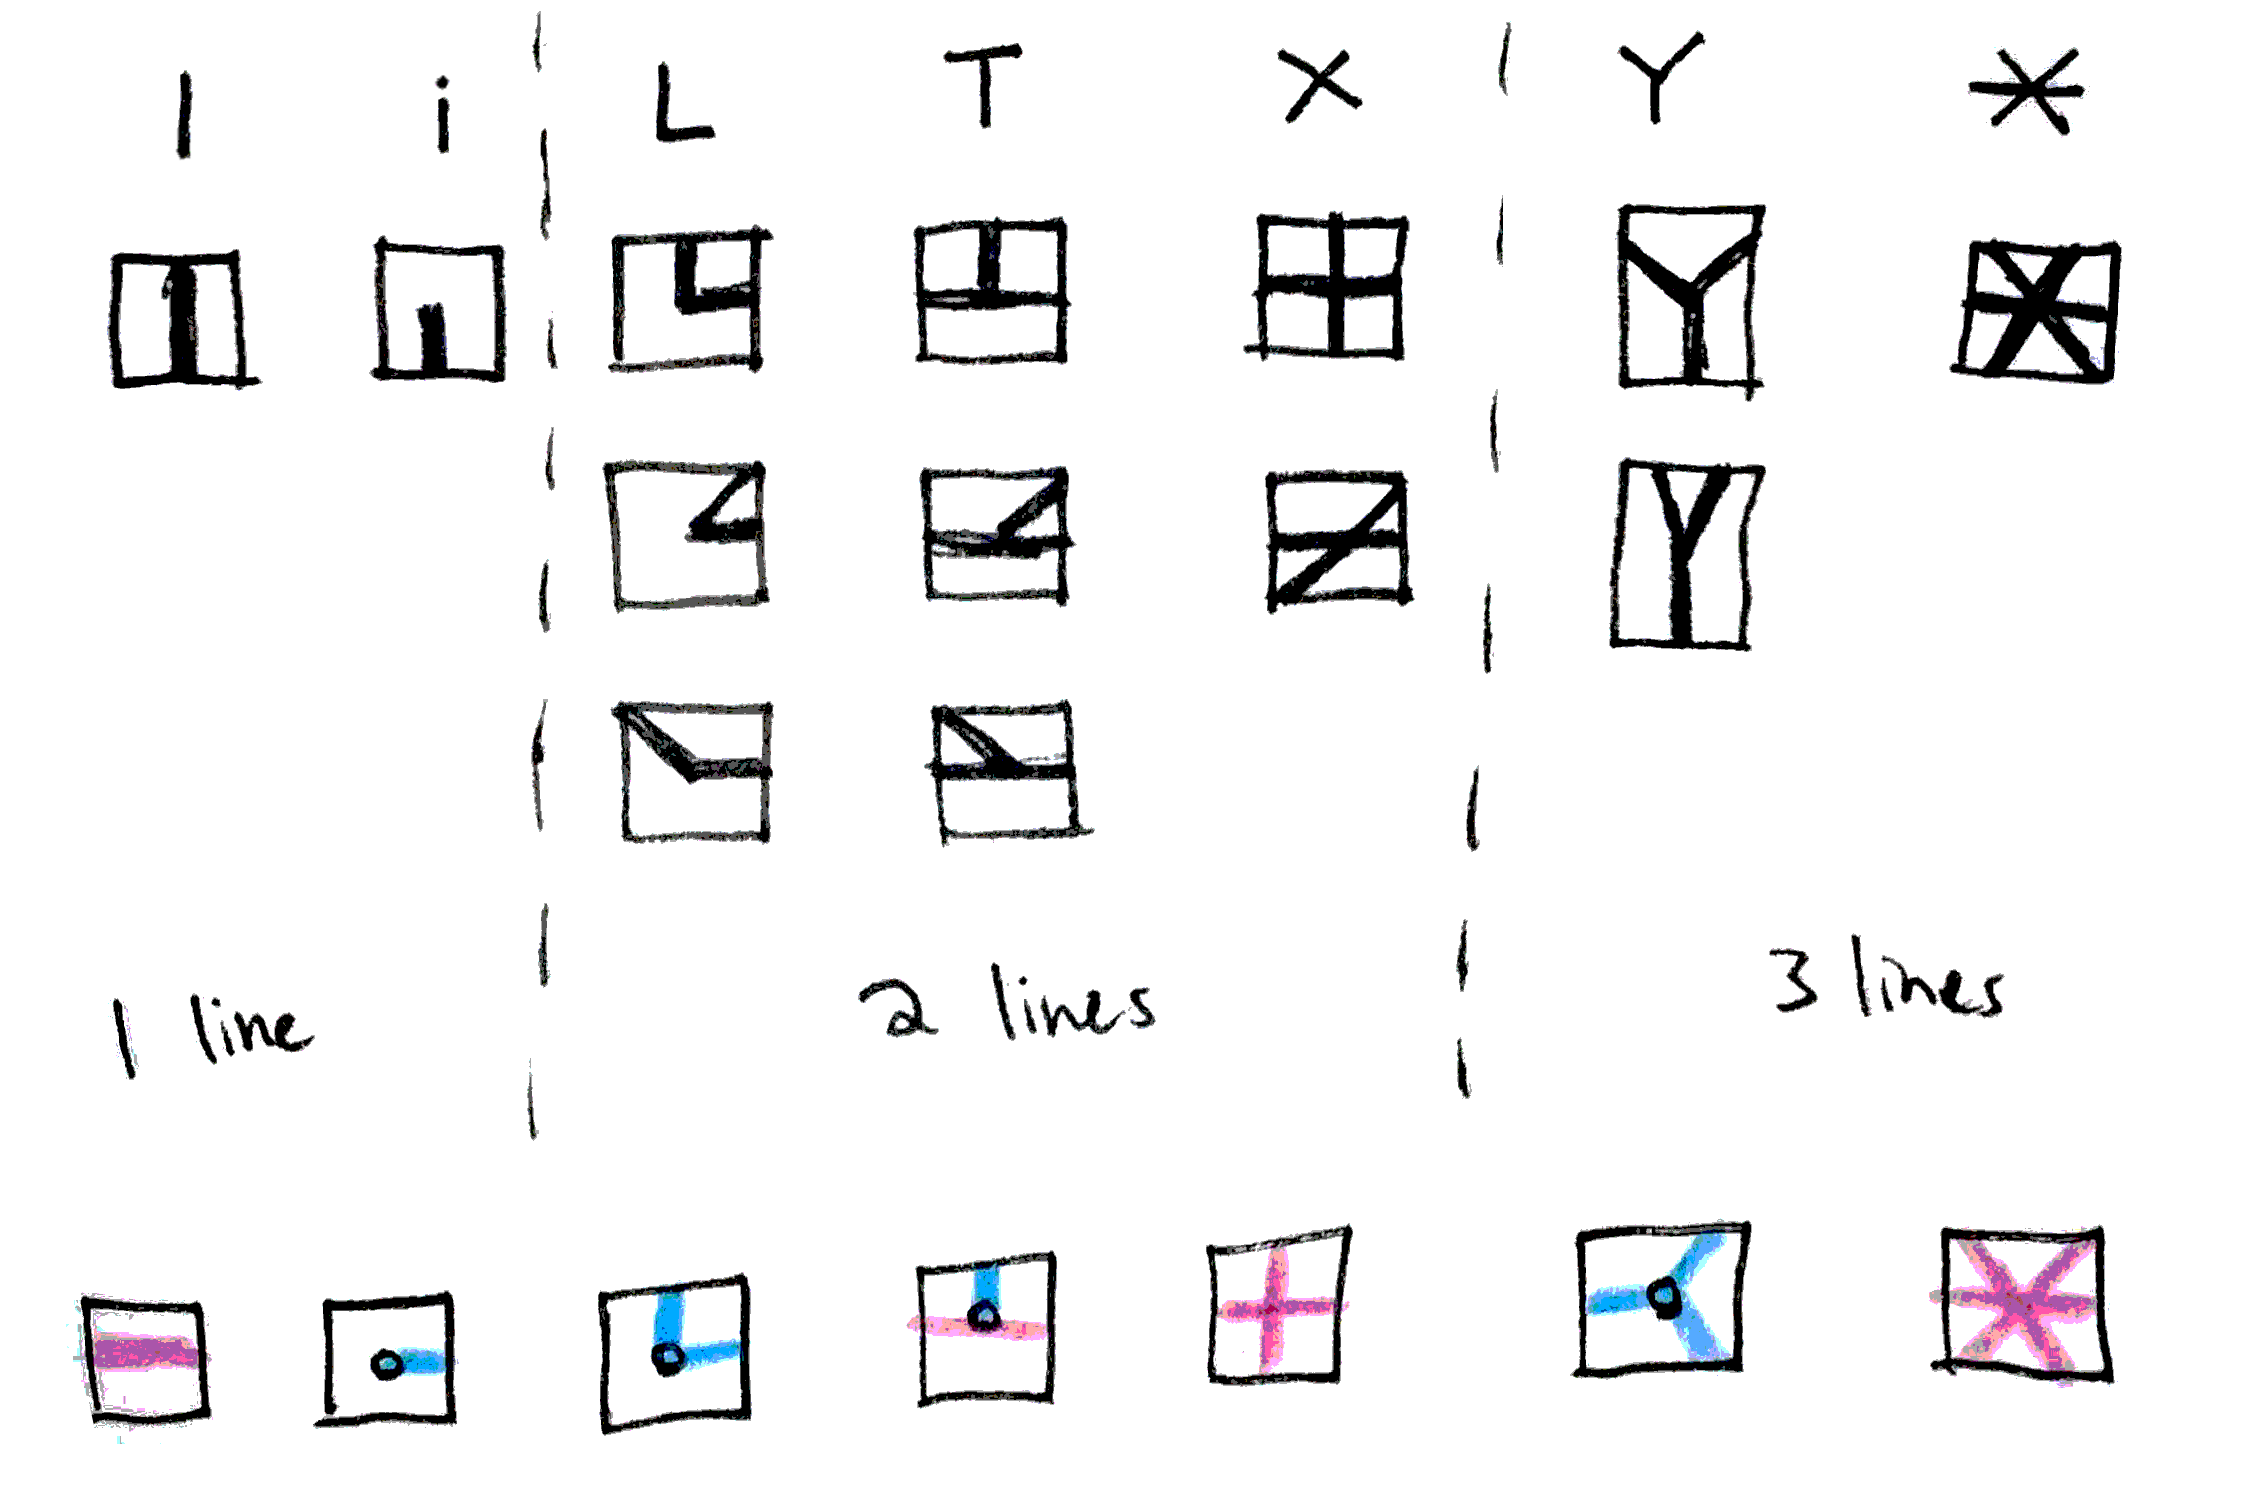 I i L T X Y *
1 line 2 lines 3 lines